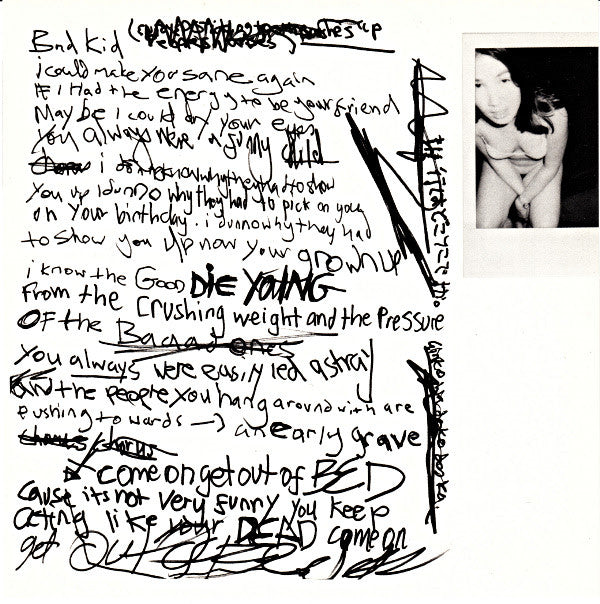 Bad Kid (
Peoples Houses)
i could make you sane again
IF i Had the energy to be your friend
May be i could dry your eyes
You always were a funny child
i dunno why they had to show
you up i dunno why they had to pick on you
on your birthday. i dunno why they had
to show you up now your grown up
i know the Good DIE YOUNG
From the Crushing weight and the Pressure
OF the Baaad ones
You always were easily led astray
and the people you hang around with are
pushing towards → an early grave
chorus / chorus
come on get out of BED
cause its not very funny you keep
acting like your DEAD come on
get OUT OF BED